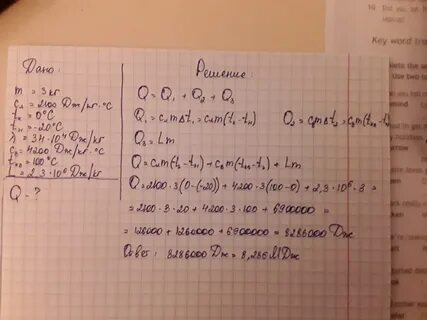 Дано:
m = 3 кг
cл = 2100 Дж/кг·°C
tк = 0°C
tн = -20°C
λ = 34·10⁴ Дж/кг
cв = 4200 Дж/кг·°C
tкв = 100°C
L = 2,3·10⁶ Дж/кг
Q - ?
Решение:
Q = Q₁ + Q₂ + Q₃
Q₁ = cлmΔt₁ = cлm(tк-tн) Q₂ = cвmΔt₂ = cвm(tкв-tк)
Q₃ = Lm
Q = cлm(tк-tн) + cвm(tкв-tк) + Lm
Q = 2100·3(0-(-20)) + 4200·3(100-0) + 2,3·10⁶·3 =
= 2100·3·20 + 4200·3·100 + 6900000 =
= 126000 + 1260000 + 6900000 = 8286000 Дж
Ответ: 8286000 Дж = 8,286 МДж
Key word tra